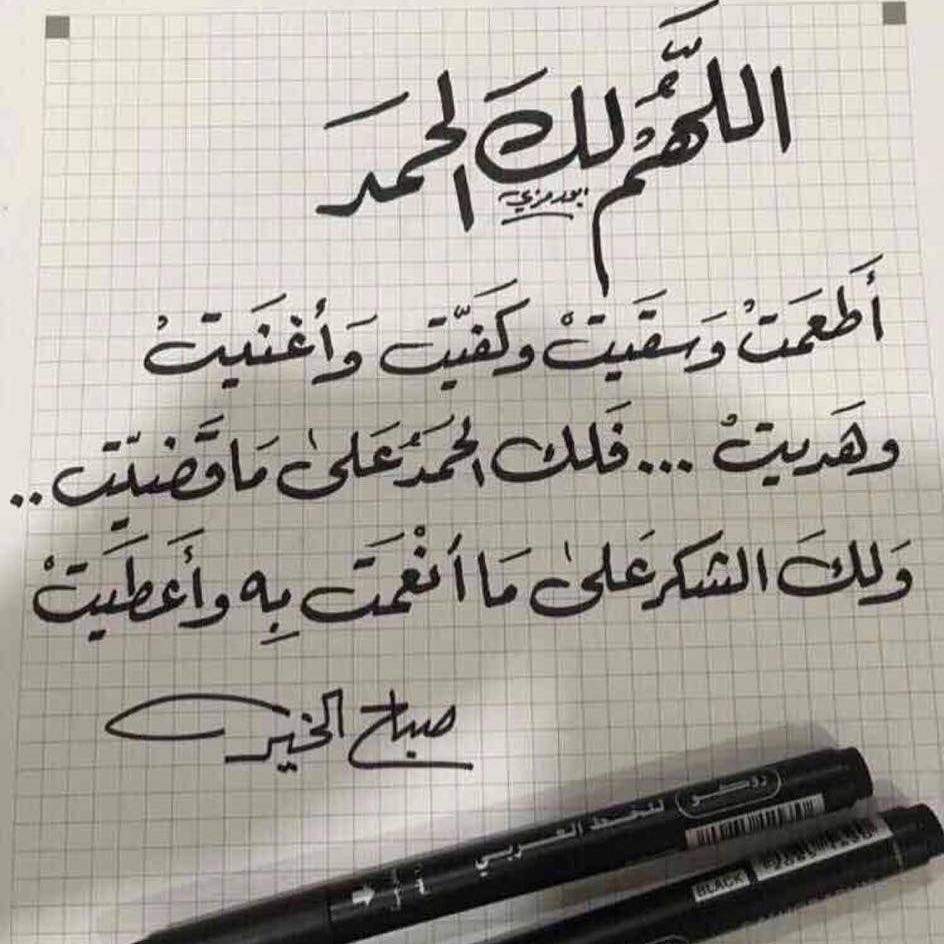 اللَّهُمَّ لكَ الحمدَ
أَطعَمَتْ وَسقَيتْ وكَفيّت وَأغنَيتْ
وهَديتْ ... فَلك الحمدُ عَلىٰ مَا قَضيّت ..
وَلكَ الشكر عَلىٰ مَا أنْعَمَت بِه وأَعطَيتْ
صباح الخير
روكو
للخط العربي
BLACK